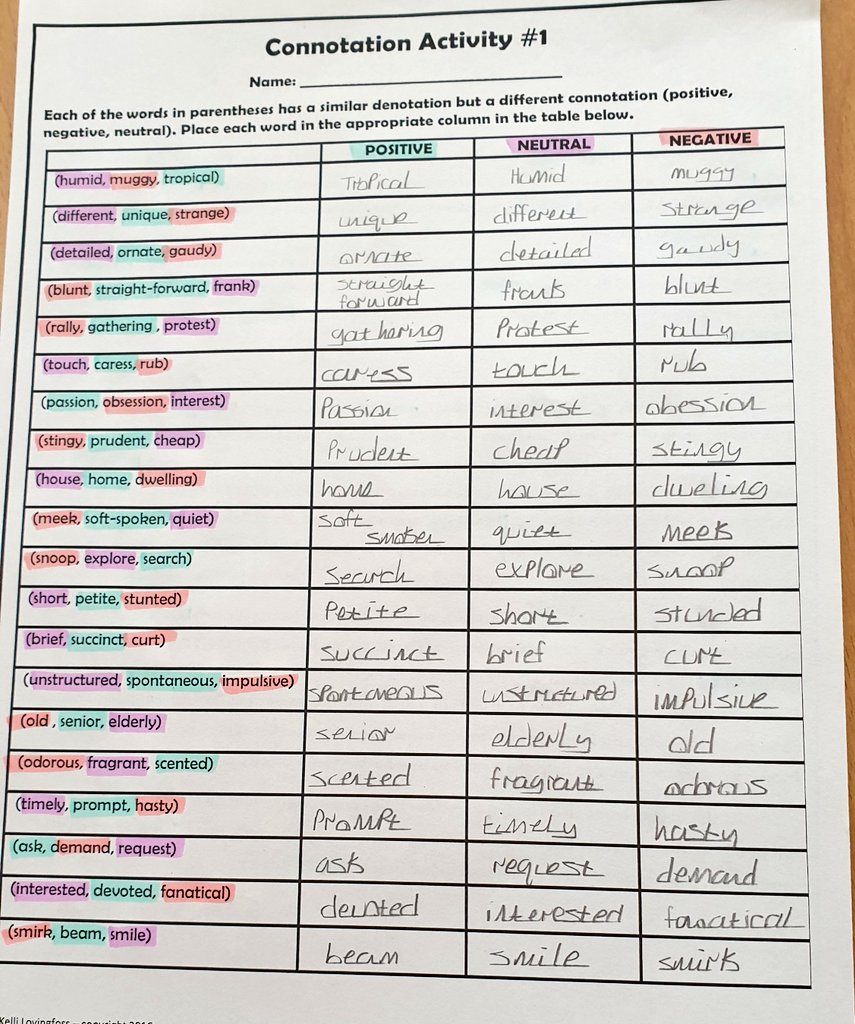 Connotation Activity #1
Name:
Each of the words in parentheses has a similar denotation but a different connotation (positive,
negative, neutral). Place each word in the appropriate column in the table below.
POSITIVE NEUTRAL NEGATIVE
(humid, muggy, tropical) Tropical Humid muggy
(different, unique, strange) unique different strange
(detailed, ornate, gaudy) ornate detailed gaudy
(blunt, straight-forward, frank) straight forward frank blunt
(rally, gathering , protest) gathering Protest rally
(touch, caress, rub) caress touch rub
(passion, obsession, interest) Passion interest obession
(stingy, prudent, cheap) Prudent cheap stingy
(house, home, dwelling) home house dweling
(meek, soft-spoken, quiet) soft quiet meek
(snoop, explore, search) search explore snoop
(short, petite, stunted) Petite short stunded
(brief, succinct, curt) succinct brief curt
(unstructured, spontaneous, impulsive) spontaneous unstructured impulsive
(old , senior, elderly) senior elderly old
(odorous, fragrant, scented) scented fragrant odorous
(timely, prompt, hasty) Prompt timely hasty
(ask, demand, request) ask request demand
(interested, devoted, fanatical) devoted interested fanatical
(smirk, beam, smile) beam smile smirk